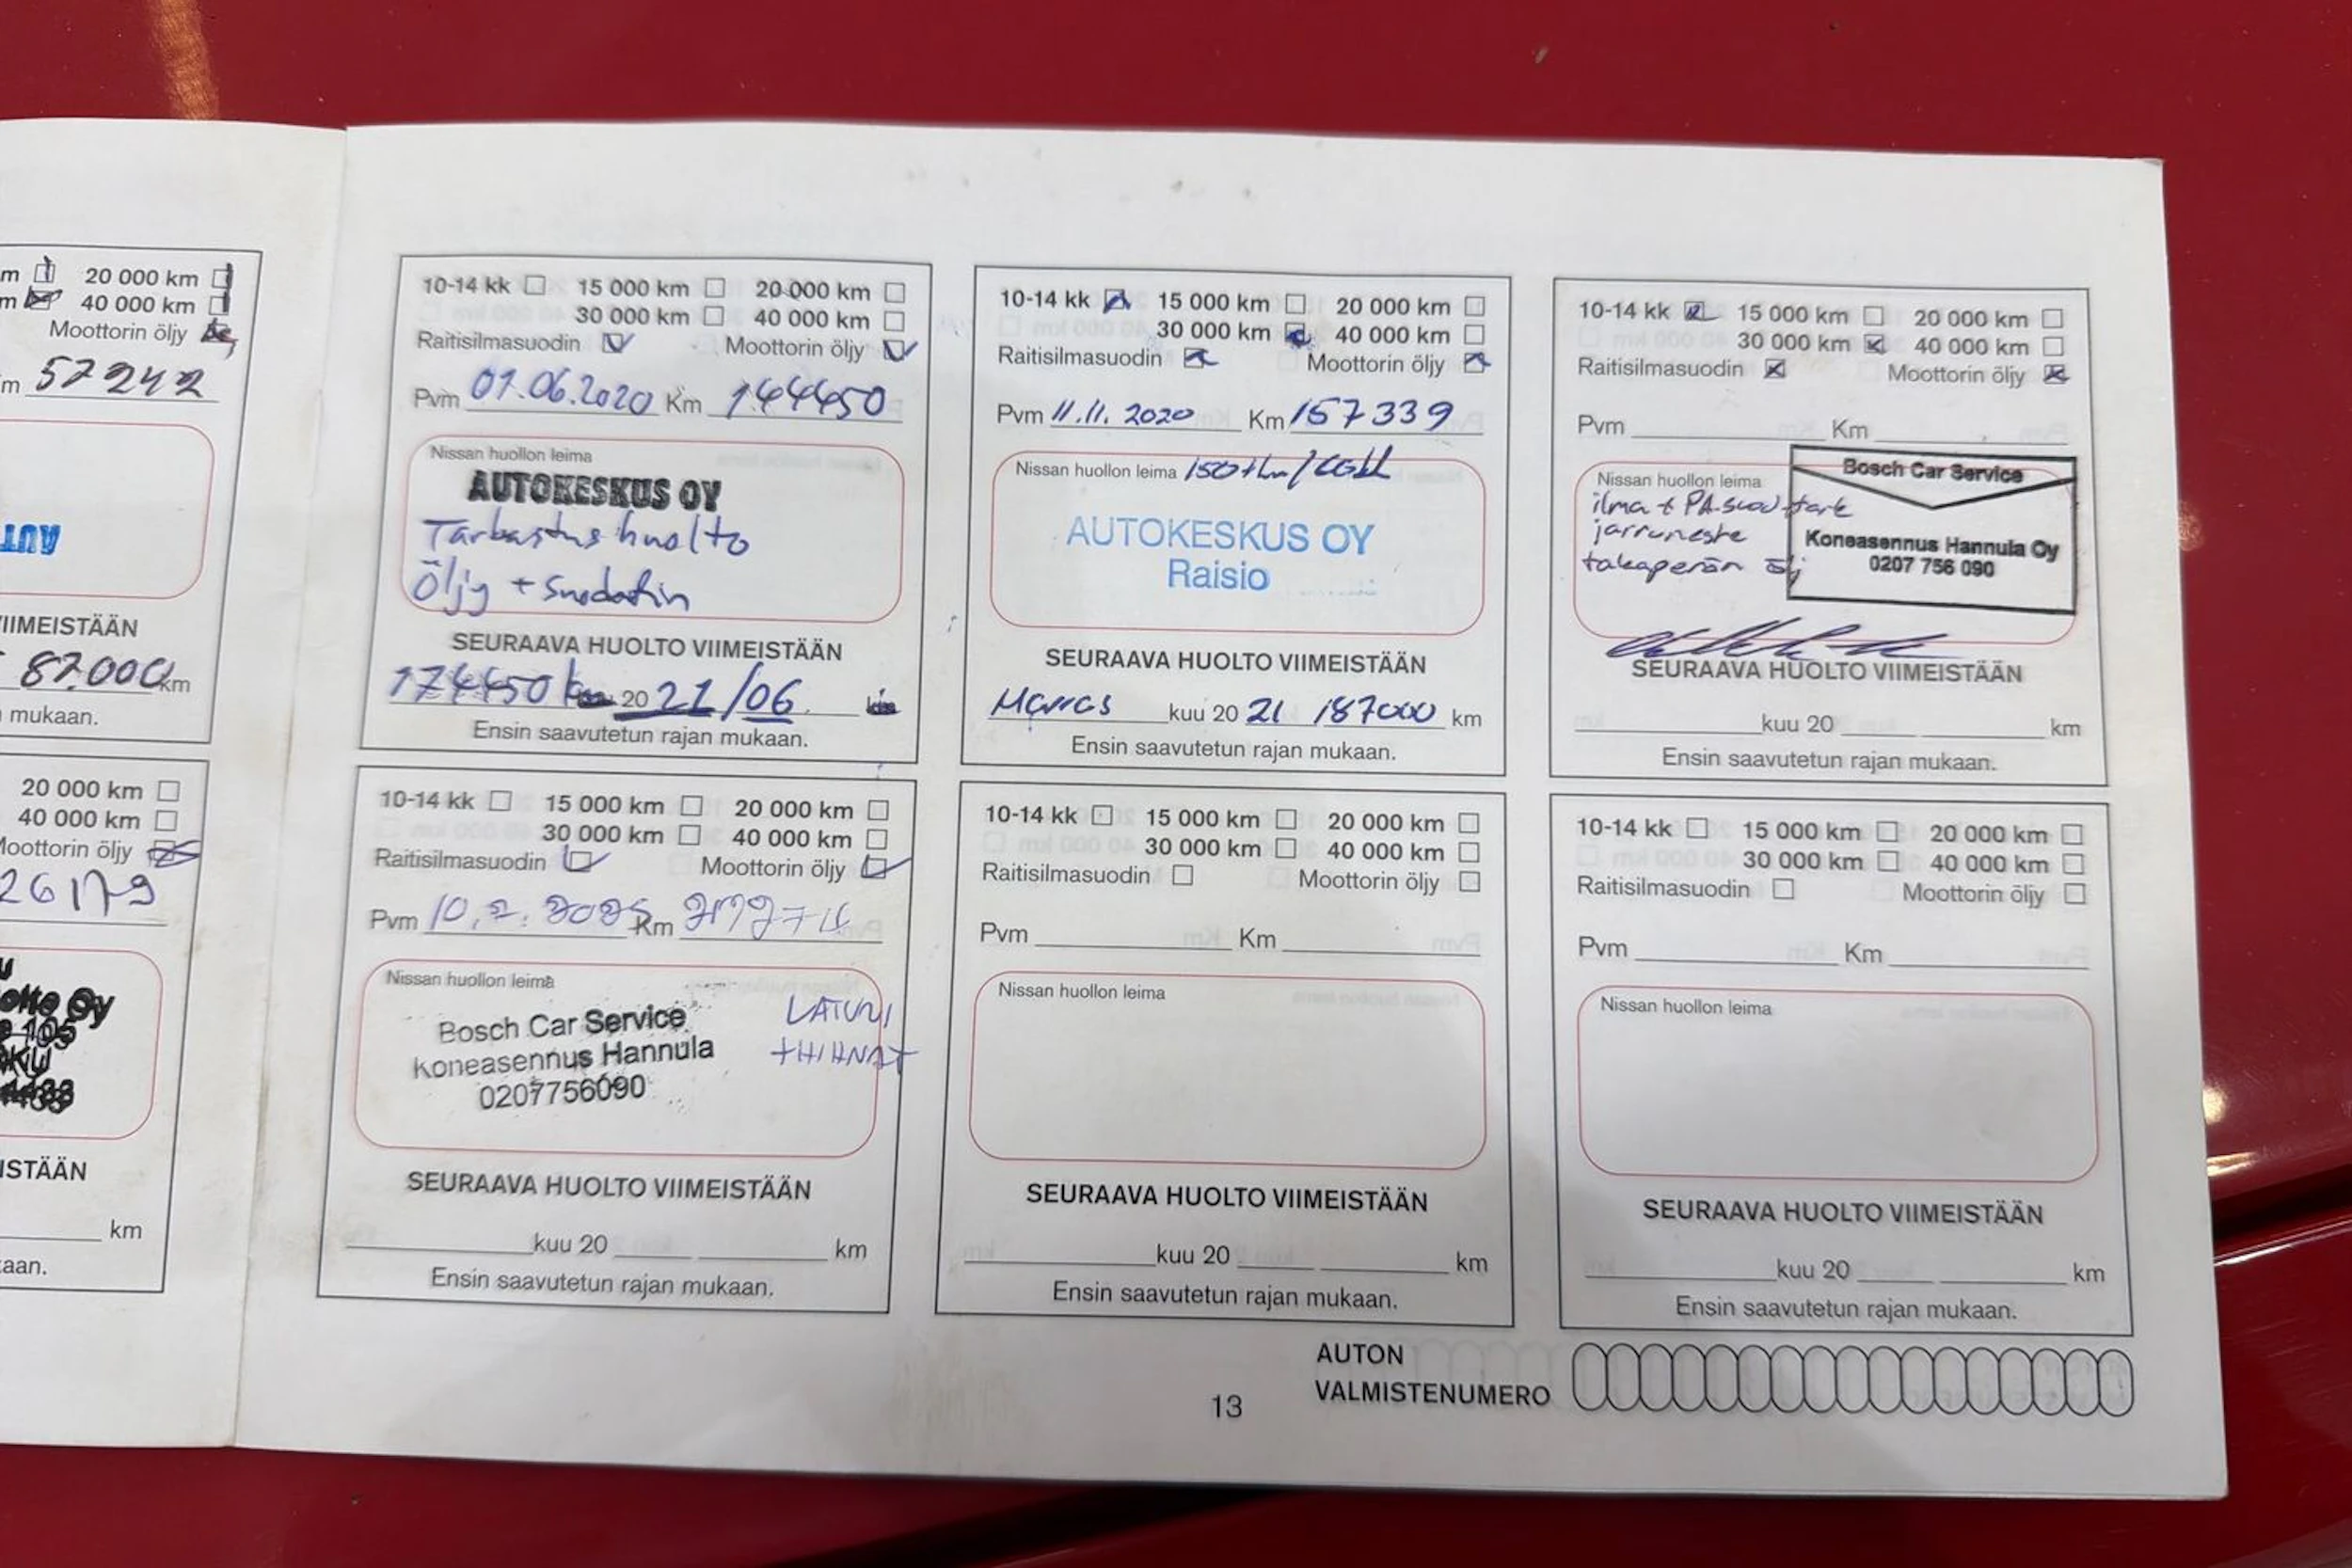 m 20 000 km
m 40 000 km
Moottorin öljy
m 57242
AUT
VIIMEISTÄÄN
87.000 km
mukaan.
20 000 km
40 000 km
Moottorin öljy
26179
Oy
105
ISTÄÄN
km
aan.
10-14 kk 15 000 km 20 000 km
30 000 km 40 000 km
Raitisilmasuodin Moottorin öljy
Pvm 01.06.2020 Km 144450
Nissan huollon leima
AUTOKESKUS OY
Tarkastus huolto
Öljy + suodatin
SEURAAVA HUOLTO VIIMEISTÄÄN
174450 km 20 21/06
Ensin saavutetun rajan mukaan.
10-14 kk 15 000 km 20 000 km
30 000 km 40 000 km
Raitisilmasuodin Moottorin öljy
Pvm 11.11. 2020 Km 157339
Nissan huollon leima
AUTOKESKUS OY
Raisio
SEURAAVA HUOLTO VIIMEISTÄÄN
Marras kuu 20 21 187000 km
Ensin saavutetun rajan mukaan.
10-14 kk 15 000 km 20 000 km
30 000 km 40 000 km
Raitisilmasuodin Moottorin öljy
Pvm Km
Nissan huollon leima
ilma + PA.suod tark
jarruneste
takaperän ölj
Bosch Car Service
Koneasennus Hannula Oy
0207 756 090
SEURAAVA HUOLTO VIIMEISTÄÄN
kuu 20 km
Ensin saavutetun rajan mukaan.
10-14 kk 15 000 km 20 000 km
30 000 km 40 000 km
Raitisilmasuodin Moottorin öljy
Pvm Km
Nissan huollon leima
Bosch Car Service
Koneasennus Hannula
0207756090
LATURI
+HIHNAT
SEURAAVA HUOLTO VIIMEISTÄÄN
kuu 20 km
Ensin saavutetun rajan mukaan.
10-14 kk 15 000 km 20 000 km
30 000 km 40 000 km
Raitisilmasuodin Moottorin öljy
Pvm Km
Nissan huollon leima
SEURAAVA HUOLTO VIIMEISTÄÄN
kuu 20 km
Ensin saavutetun rajan mukaan.
10-14 kk 15 000 km 20 000 km
30 000 km 40 000 km
Raitisilmasuodin Moottorin öljy
Pvm Km
Nissan huollon leima
SEURAAVA HUOLTO VIIMEISTÄÄN
kuu 20 km
Ensin saavutetun rajan mukaan.
13
AUTON
VALMISTENUMERO